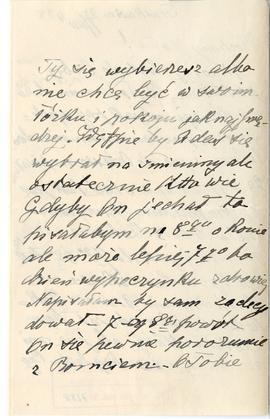 Ty się wybierzesz albo
nie chcę być w swoim
łóżku i pokoju jak naj
drzej. Wątpię by Adaś się
wybrał na imieniny ale
ostatecznie Kto wie
Gdyby On jechał to
pisałabym na 8go o konie
ale może lepiej 7go bo
dzień wypoczynku zdrowiej
Napisałam by sam zadecy
dował – 7 czy 8 powrót
On się pewnie porozumie
z Romciem – O Tobie